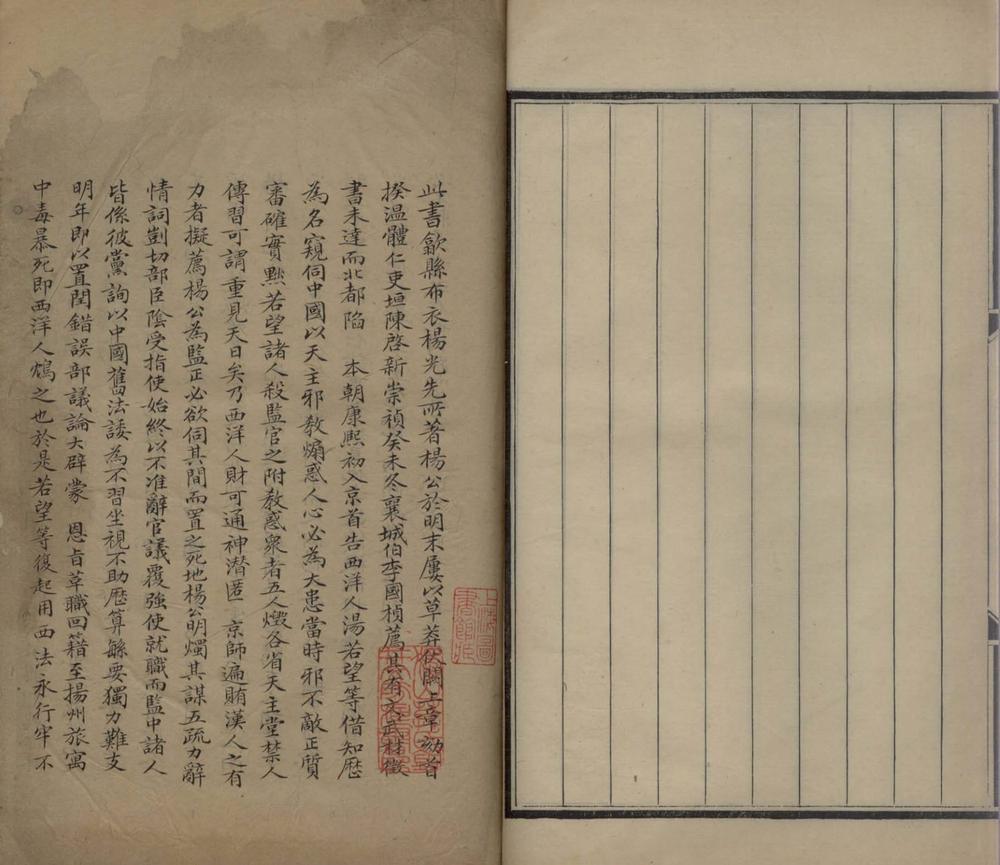 此書歙縣布衣楊光先所著楊公於明末屢以草莽伏闕上章劾首
揆溫體仁吏垣陳啓新崇禎癸未冬襄城伯李國楨薦其有文武材徵
書未達而北都陷　本朝康熙初入京首告西洋人湯若望等借知歷
為名窺伺中國以天主邪教煽惑人心必為大患當時邪不敵正質
審確實黜若望諸人殺監官之附教惑衆者五人燬各省天主堂禁人
傳習可謂重見天日矣乃西洋人財可通神潛匿　京師遍賄漢人之有
力者擬薦楊公為監正必欲伺其間而置之死地楊公明燭其謀五疏力辭
情詞剴切部臣陰受指使始終以不准辭官議覆強使就職而監中諸人
皆係彼黨詢以中國舊法諉為不習坐視不助歷算緐要獨力難支
明年即以置閏錯誤部議論大辟蒙　恩旨革職回籍至揚州旅寓
中毒暴死即西洋人鴆之也於是若望等復起用西法永行牢不
上海圖
書館藏